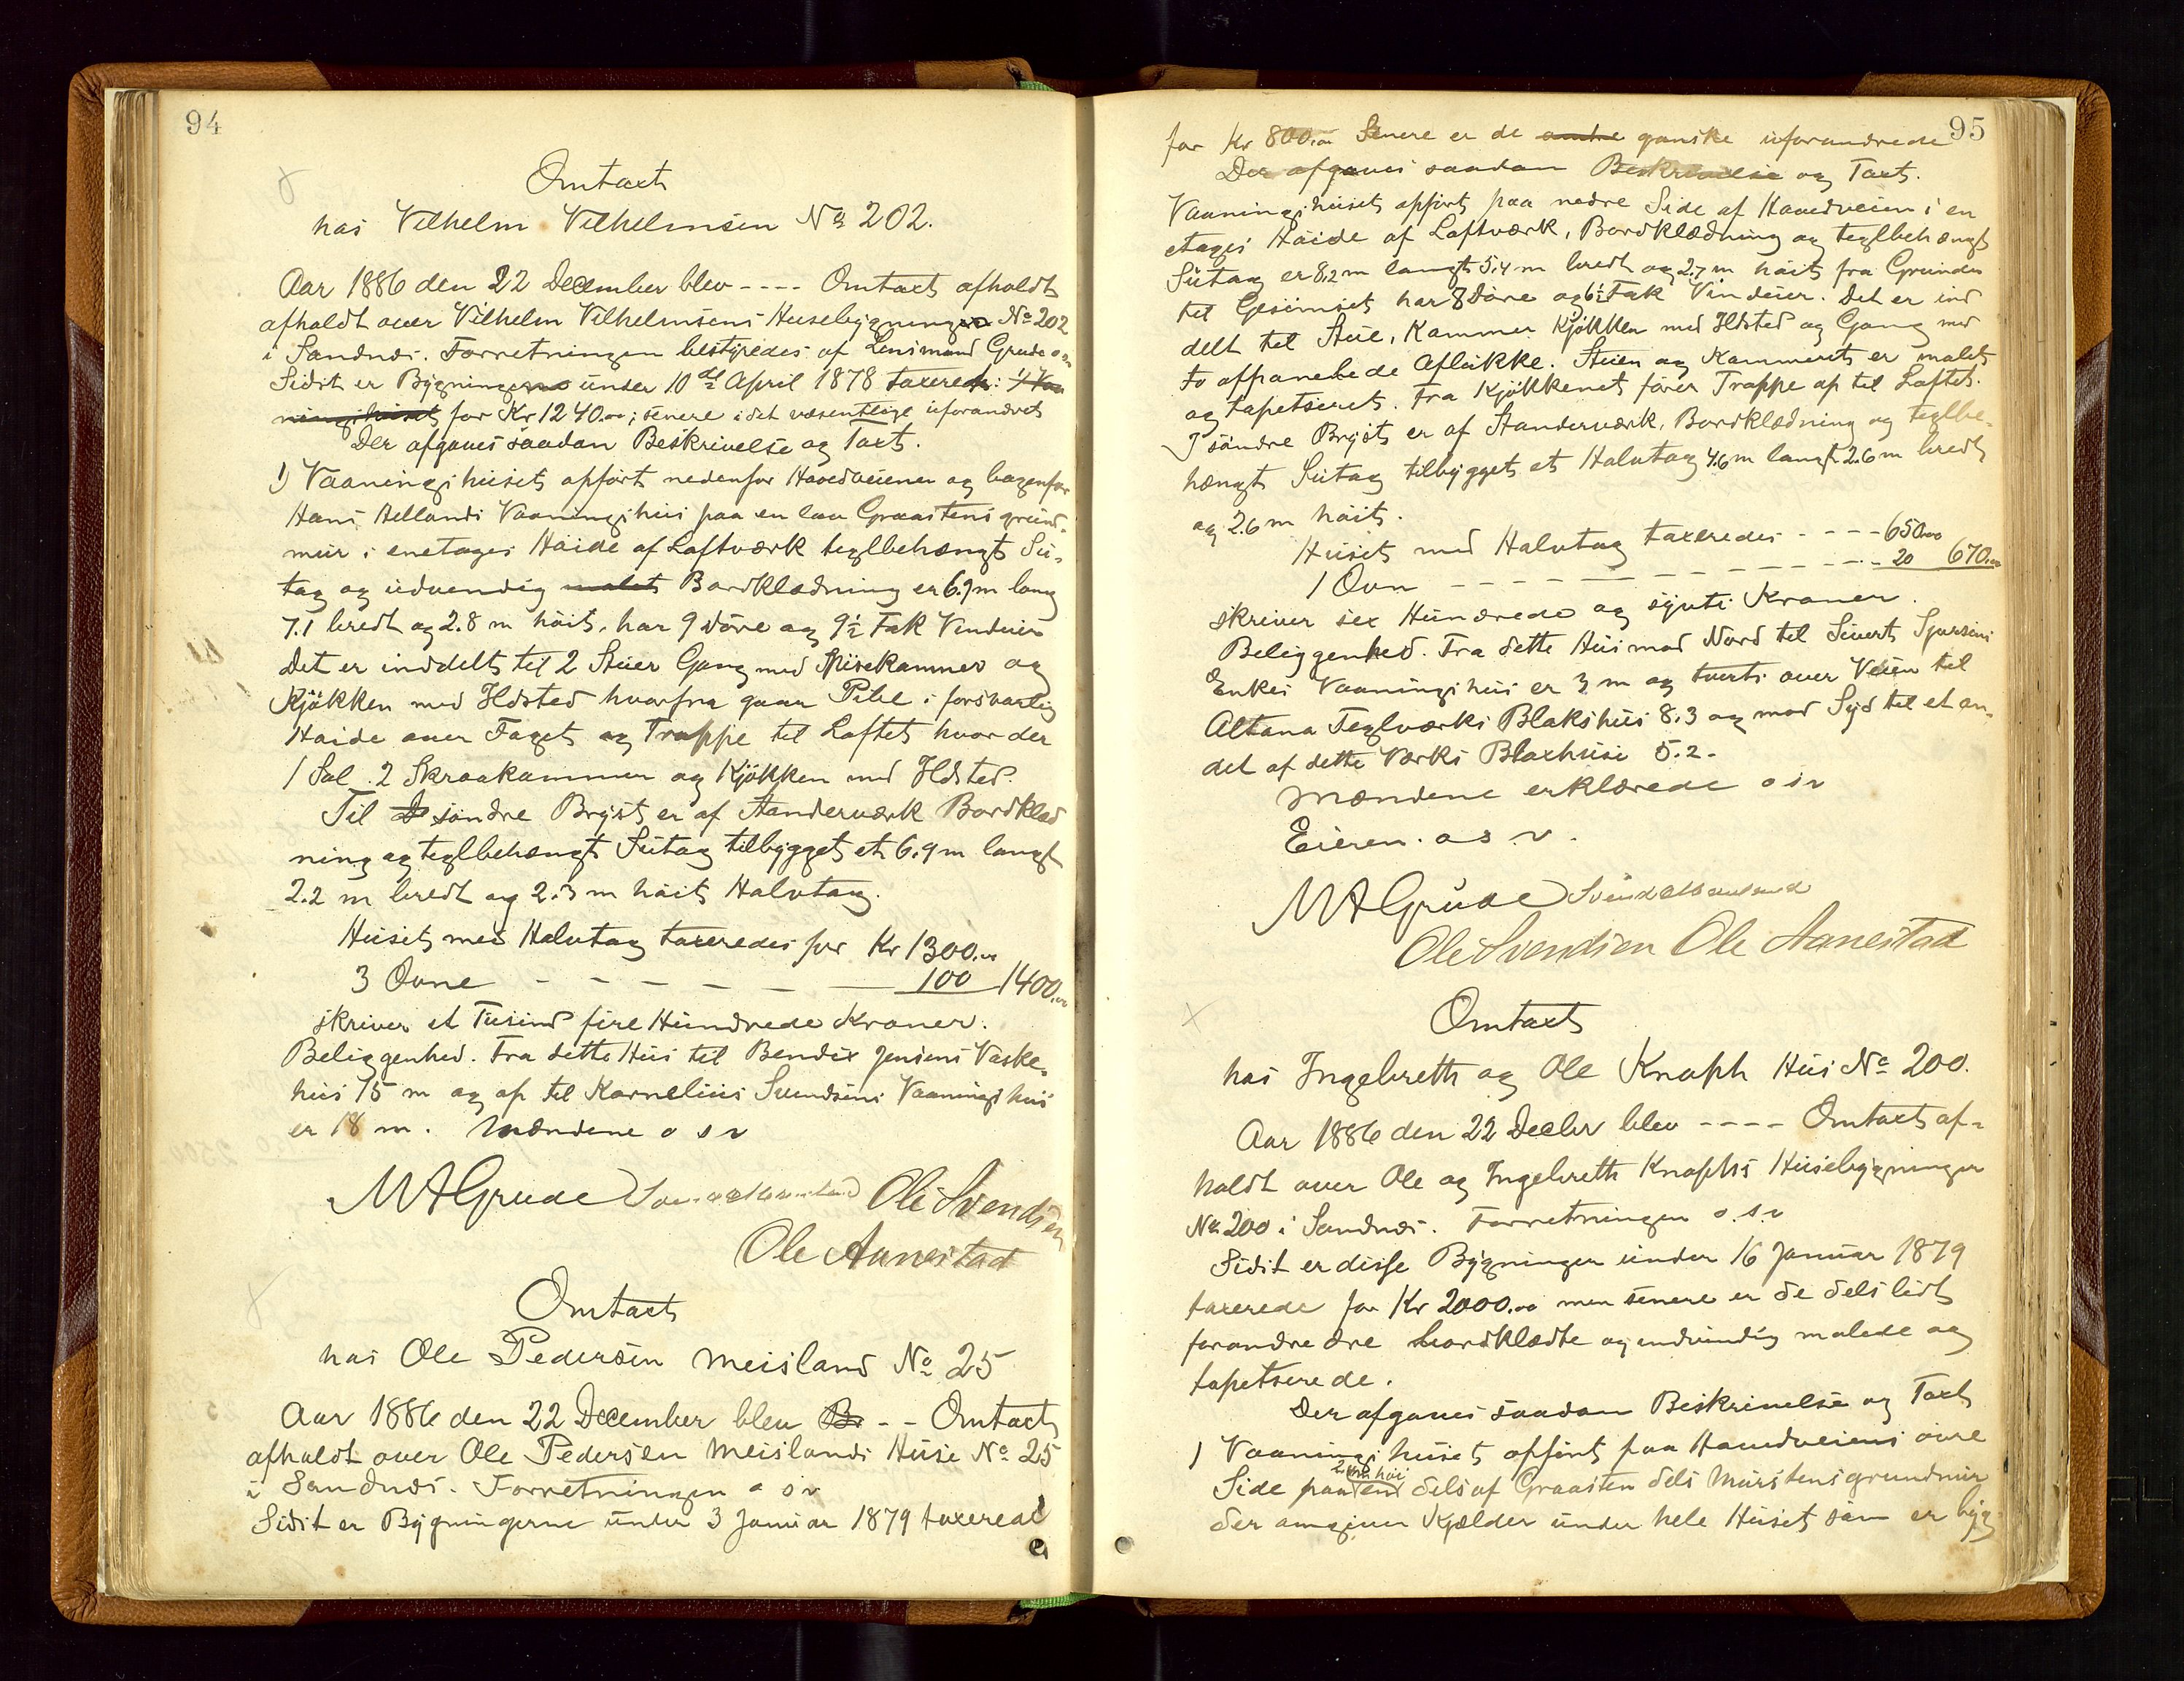 94
Omtaxt
hos Vilhelm Vilhelmsen No 202.
Aar 1886 den 22 December blev ---- Omtaxt afholdt
afholdt over Vilhelm Vilhelmsens Husebygning No 202
i Sandnæs. Forretningen bestyredes af Lensmand Grude o s v
Sidst er Bygningen under 10de April 1878 taxeret: 1) Vaa
ningshuset for Kr 1240.00; senere i det væsentlige uforandret
Der afgaves saadan Beskrivelse og Taxt.
1) Vaaningshuset opført nedenfor Hovedveienen og bagenfor
Hans Aellands Vaaningshus paa en lav Graastensgrund-
mur i enetages Høide af Loftværk teglbehængt Su-
tag og udvendig malet Bordklædning er 6.9 m lang
7.1 bredt og 2.8 m høit, har 9 Døre og 9½ Fak Vinduer
Det er inddelt til 2 Stuer Gang med Spisekammer og
Kjøkken med Ildsted hvorfra gaar Pibe i forsvarlig
Høide over Taget og Trappe til Loftet hvor der
1 Sal. 2 Skraakammer og Kjøkken med Ildsted.
Til D søndre Bryst er af Standerværk Bordklæd
ning og teglbehængt Sutag tilbygget et 6.9 m langt
2.2 m bredt og 2.3 m høit Halvtag.
Huset med Halvtag taxeredes for Kr 1300.00
3 Ovne - - - - - - 100 1400.00
skriver et Tusind fire Hundrede Kroner.
Beliggenhed. Fra dette Hus til Bendix Jensens Vaske-
hus 15 m og op til Kornelius Svendsens Vaaningshus
er 18 m. Mændene o s v
M A Grude Ole Svendsen
Ole Aanestad
Omtaxt
hos Ole Pedersen Meisland No 25
Aar 1886 den 22 December blev Be - - Omtaxt
afholdt over Ole Pedersen Meislands Huse No 25
i Sandnæs. Forretningen o s v
Sidst er Bygningerne under 3 Januar 1879 taxered
95
for Kr 800.00 Senere er de andre ganske uforandrede
Der afgaves saadan Beskrivelse og Taxt.
Vaaningshuset opført paa nedre Side af Hovedveien i en
etages Høide af Loftværk, Bordklædning og teglbehængt
Sutag er 8,2 m langt 5.4 m bredt og 2.7 m høit fra Grunden
til Gesimset har 8 Døre og 6½ Fak Vinduer. Det er ind
delt til Stue, Kammer Kjøkken med Ildsted og Gang med
to afpanelede Aflukke. Stuen og Kammeret er malet
og tapetseret. Fra Kjøkkenet fører Trappe op til Loftet.
I søndre Bryst er af Standerværk, Bordklædning og teglbe-
hængt Sutag tilbygget et Halvtag 4.6 m langt 2.6 m bredt
og 2.6 m høit.
Huset med Halvtag taxeredes - - - - 650.00
1 Ovn - - - - - - - - - - - - 20 670.00
skriver sex Hundrede og sytti Kroner.
Beliggenhed. Fra dette Hus mod Nord til Sivert Sjursens
Enkes Vaaningshus er 3 m og tverts over Veien til
Altona Teglværks Blakshus 8.3 og mod Syd til et an-
det af dette Værks Blaxhuse 5.2.
Mændene erklærede o s v
Eieren. o s v.
M A Grude
Ole Svendsen Ole Aanestad
Omtaxt
hos Ingebreth og Ole Knaph Hus No 200.
Aar 1886 den 22 Decbr blev ---- Omtaxt af-
holdt over Ole og Ingebreth Knaphs Husebygninger
No 200 i Sandnæs. Forretningen o.s.v
Sidst er disse Bygninger under 16 Januar 1879
taxerede for Kr 2000.00 men senere er de dels lidt
forandrede bordklædte og indvindig malede og
tapetserede.
Der afgaves saadan Beskrivelse og Taxt
1 Vaaningshuset opført paa Hovedveiens øvre
Side paa en 2. m høi dels af Graasten dels Murstensgrundmur
der omgiver Kjælder under hele Huset som er byg